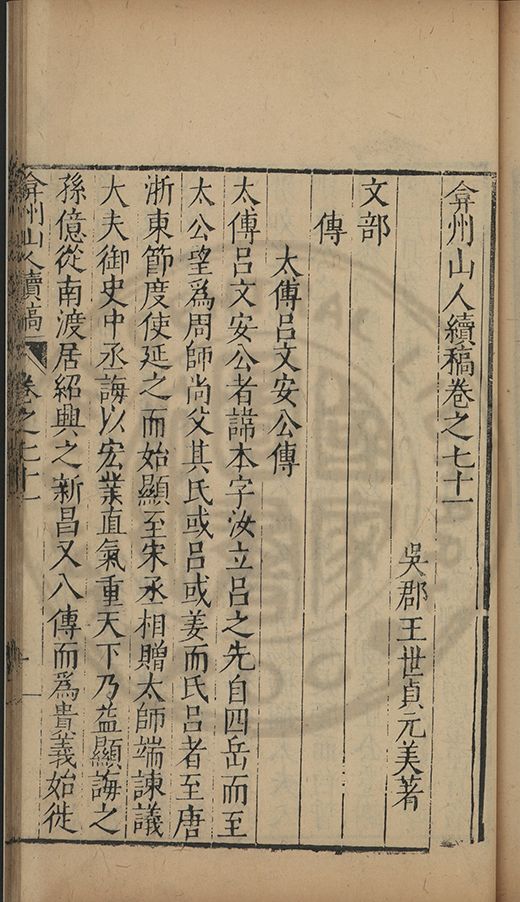 弇州山人續稿卷之七十一
吳郡王世貞元美著
文部
傳
太傅呂文安公傳
太傅呂文安公者諱本字汝立呂之先自四岳而至
太公望爲周師尚父其氏或呂或姜而氏呂者至唐
浙東節度使延之而始顯至宋丞相贈太師端諫議
大夫御史中丞誨以宏業直氣重天下乃益顯誨之
孫億從南渡居紹興之新昌又八傳而爲貴義始徙
弇州山人續稿
卷之七十一
一